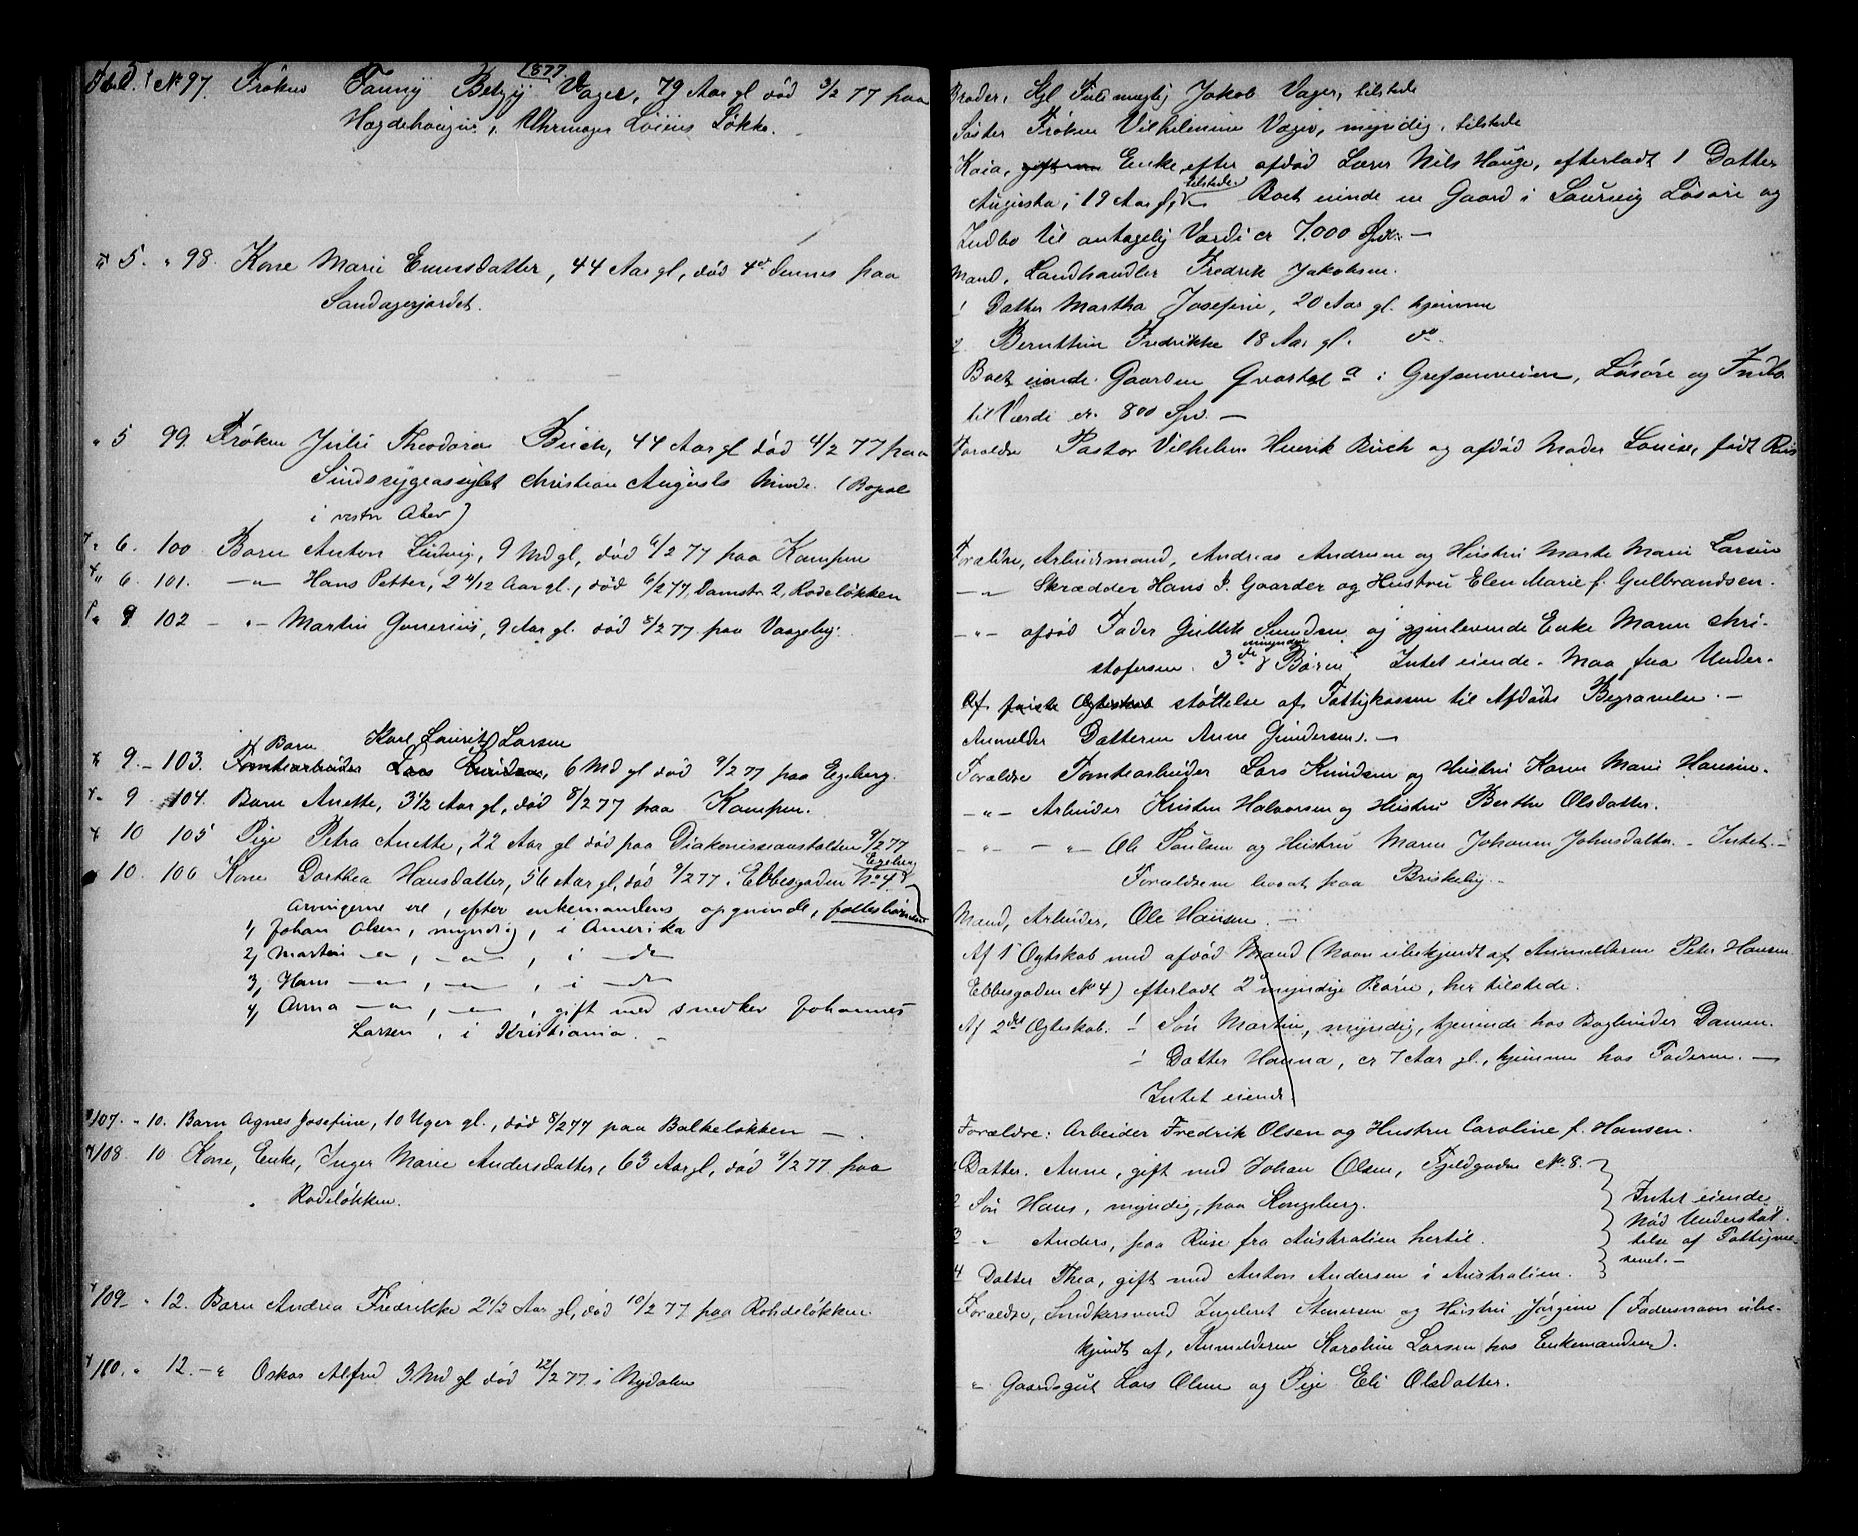 1877
Febr. 5. No 97. Frøken Fanny Betzy Vager, 79 Aar gl død 3/2 77 paa
Hægdehougen, Uhrmager Løkke.
" 5. " 98. Kone Marie Enersdatter, 44 Aar gl, død 4de dennes paa
Sandagerjordet.
" 5 99. Frøken Julie Theodora Buch, 44 Aar gl død 4/2 77 paa
Sindssygeasylet Christian Augusts Minde. (Bopæl
i vestre Aker)
" 6. 100 Barn Anton Ludvig, 9 Md gl, død 6/2 77 paa Kampen
" 6. 101. —"— Hans Petter, 2 4/12 Aar gl., død 6/2 77, Damstr. 2, Rodeløkken
" 9 102 — " — Martin Gunerius, 9 Aar gl. død 5/2 77 paa Vaageby.
Barn Karl Lauritz Larsen
" 9. — 103. Tomtearbeider Lars Knudsen, 6 Md gl død 9/2 77 paa Egeberg.
" 9 104. Barn Anette, 3 1/2 Aar gl, død 8/2 77 paa Kampen.
" 10 105 Pige Petra Anette, 22 Aar gl død paa Diakonisseanstalten 9/2 77
" 10. 106 Kone Dorthea Hansdatter, 56 Aar gl, død 9/2 77 i Ebbesgaden No 4. Egeberg
Arvingerne ere, efter enkemandens opgivende, fællesbørnene
1, Johan Olsen, myndig, i Amerika
2, Martin —"—, —"—, i —do
3, Hans —"—, —"—, i —do
4, Anna —"—, —"—, gift med snedker Johannes
Larsen, i Kristiania. —
107. " 10. Barn Agnes Josefine, 10 Uger gl., død 8/2 77 paa Balkeløkken —
108. 10 Kone, Enke, Inger Marie Andersdatter, 63 Aar gl, død 9/2 77 paa
Rodeløkken.
109 " 12. Barn Andrea Fredrikke 2 1/2 Aar gl, død 10/2 77 paa Rohdeløkken
110. " 12. — " Oskar Alfred 3 Md gl død 12/2 77 i Nydalen
Broder, Kgl Fuldmægtig Jakob Vager, tilstede
Søster Frøken Vilhelmine Vager, myndig, tilstede
Kaia, gift m Enke efter afdød Lærer Nils Hauge, efterladt 1 Datter
Augusta, 19 Aar gl, tilstede. Boet eiende en Gaard i Laurvig Løsøre og
Indbo til antagelig Værdi cr 7.000 Spd. —
Mand, Landhandler Fredrik Jakobsen.
1 Datter Martha Josefine, 20 Aar gl. hjemme
2 Bernthine Fredrikke 18 Aar gl. do
Boet eiende Gaarden Qvartal a i Grefsenveien, Løsøre og Indbo
til Værdi cr. 800 Spd. —
Forældre Pastor Vilhelm Henrik Buch og afdød Moder Louise, født Riis
Forældre, Arbeidsmand, Andreas Andersen og Hustru Marte Marie Larsen
—"— Skrædder Hans P. Gaarder og Hustru Elen Marie f. Gulbrandsen.
—"— afdød Fader Gullik Knudsen og gjenlevende Enke Maren Chri-
stofersen. 3de myndige Børn Intet eiende. Maa faa Under-
Af første Ægteskab støttelse af Fattigkassen til Afdødes Begravelse. —
Anmelder Datteren Anne Gundersen. —
Forældre Tomtearbeider Lars Knudsen og Hustru Karen Marie Hansen.
—"— Arbeider Kristen Halvorsen og Hustru Berthe Olsdatter.
—"— —"— Ole Paulsen og Hustru Maren Johanne Johnsdatter. — Intet. —
Forældrene boende paa Briskeby. —
Mand, Arbeider, Ole Hansen. —
Af 1 Ægteskab med afdød Mand (Navn ubekjendt af Anmelderen Peter Hansen
Ebbesgaden No 4) efterladt 2 myndige Børn, her tilstede.
Af 2det Ægteskab. 1 Søn Martin, myndig, tjenende hos Bogbinder Damm.
1 Datter Hanna, cr 7 Aar gl., hjemme hos Faderen. —
Intet eiende
Forældre: Arbeider Fredrik Olsen og Hustru Caroline f. Hansen.
1 Datter. Anne, gift med Johan Olsen, Fjeldgaden No. 8.
2 Søn Hans, myndig, paa Kongsberg.
3 " Anders, paa Reise fra Australien hertil.
4 Datter Thea, gift med Anton Andersen i Australien.
Intet eiende
Nød Understøt-
telse af Fattigvæ-
senet. —
Forældre, Snedkersvend Ingebret Stenersen og Hustru Jørgine (Fadersnavn ube-
kjendt af, Anmelderen Karoline Larsen hos Enkemanden).
" Gaardsgut Lars Olsen og Pige Eli Olsdatter.